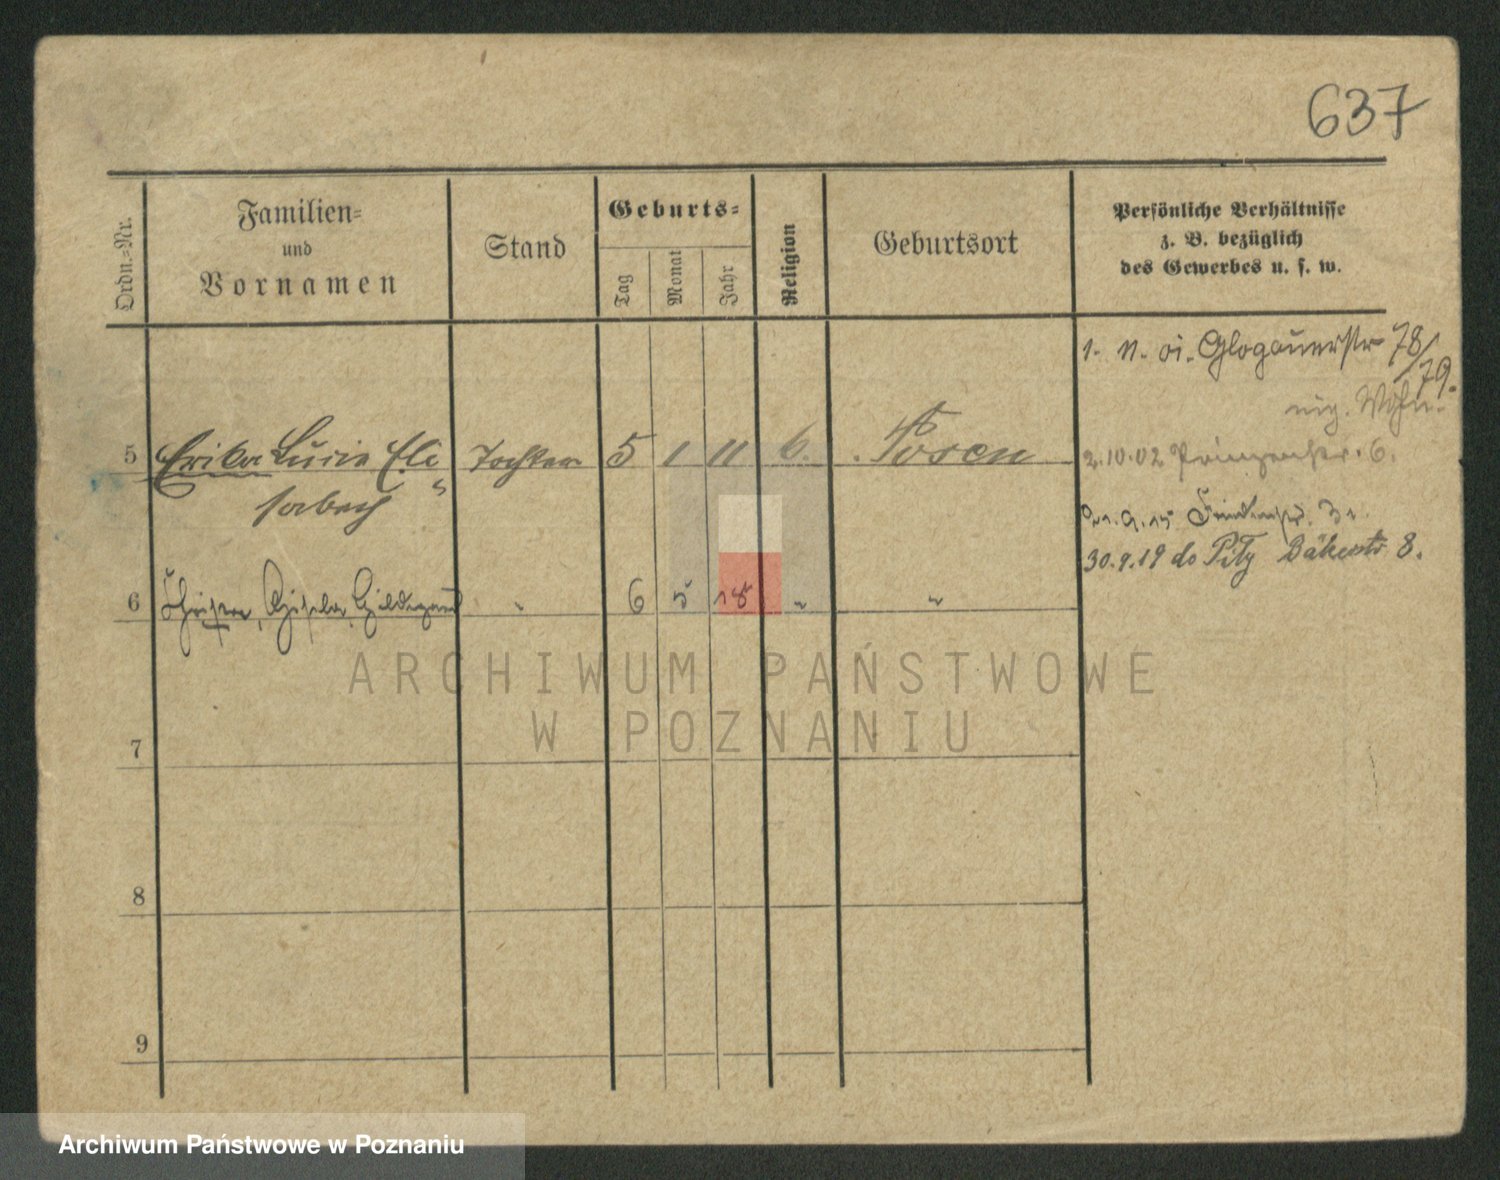 637
Ordn.-Nr.
Familien-
und
Vornamen
Stand
Geburts-
Tag
Monat
Jahr
Religion
Geburtsort
Persönliche Verhältnisse
z. B. bezüglich
des Gewerbes u. s. w.
1. 11. 01. Glogauerstr 78/
79.
Wohn.
5 Erika Lucie Eli Tochter 5 1 11 6. Posen
2.10.02 Prinzenstr. 6.
sabeth
6 Gisela, Hildegard " 6 5 15 " "
30.9.19 do Pitz Bäkerstr 8.
7
8
9
ARCHIWUM PAŃSTWOWE
W POZNANIU
Archiwum Państwowe w Poznaniu